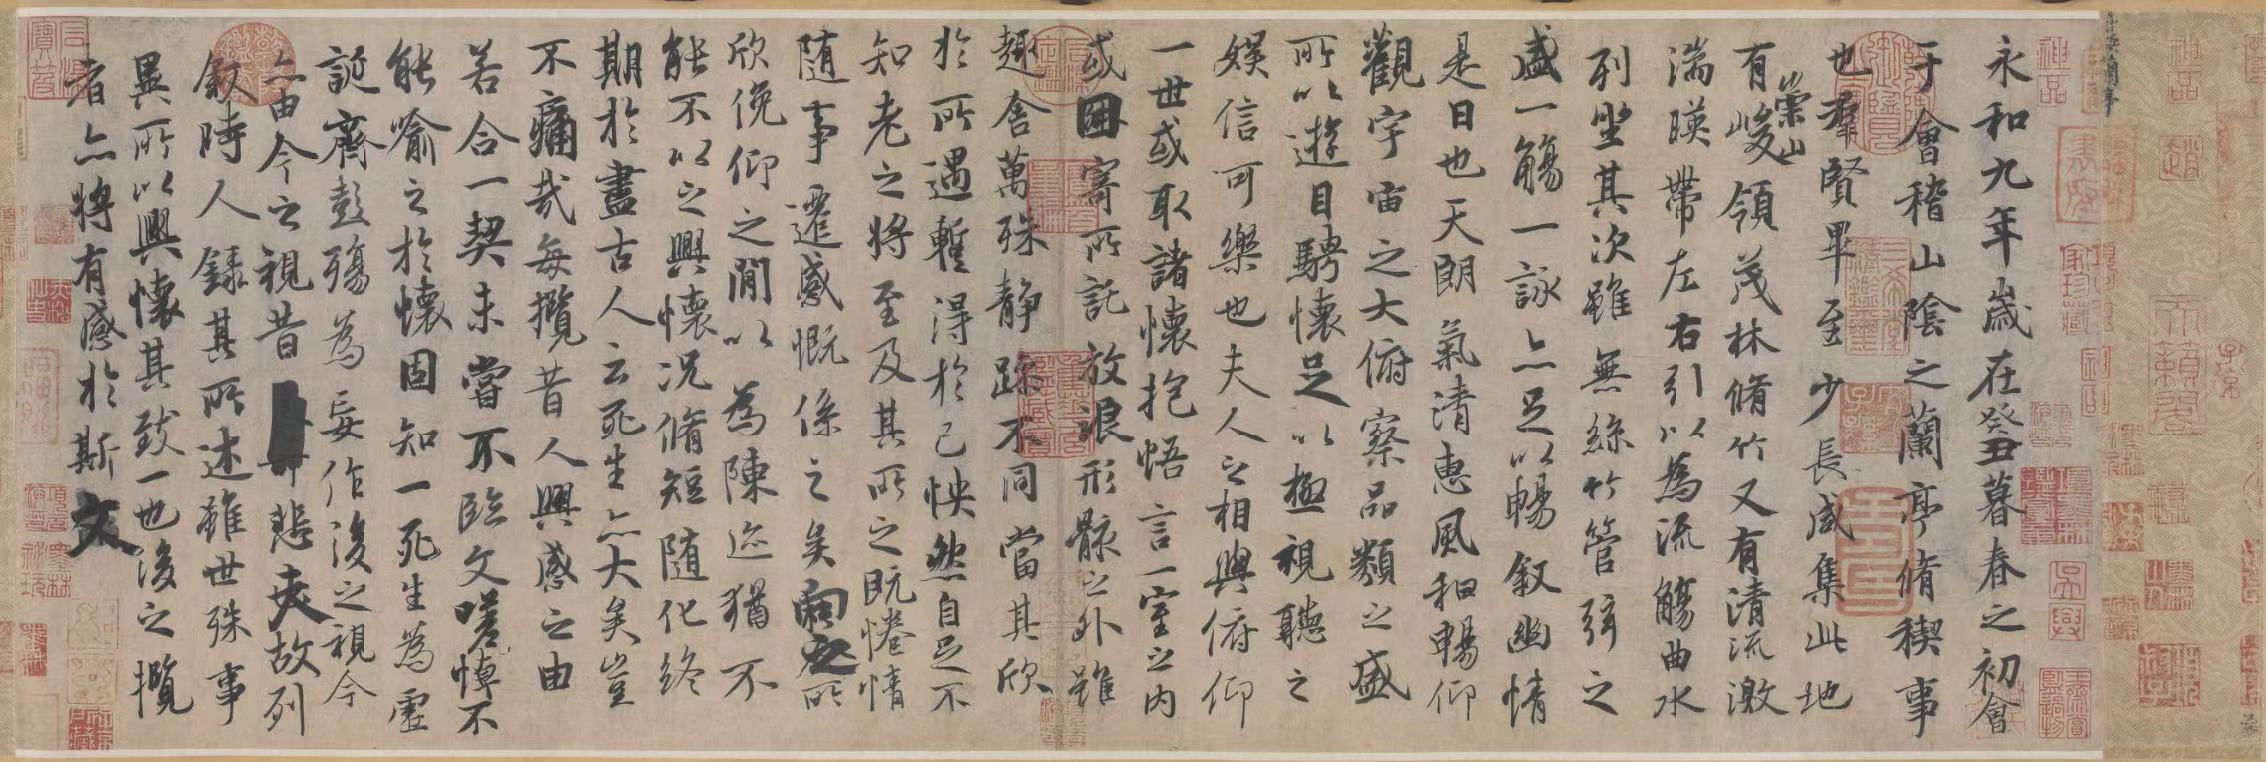 永和九年歲在癸丑暮春之初會
于會稽山陰之蘭亭脩稧事
也羣賢畢至少長咸集此地
有崇山峻領茂林脩竹又有清流激
湍暎帶左右引以為流觴曲水
列坐其次雖無絲竹管弦之
盛一觴一詠亦足以暢敘幽情
是日也天朗氣清惠風和暢仰
觀宇宙之大俯察品類之盛
所以遊目騁懷足以極視聽之
娛信可樂也夫人之相與俯仰
一世或取諸懷抱悟言一室之內
或因寄所託放浪形骸之外雖
趣舍萬殊靜躁不同當其欣
於所遇蹔得於己怏然自足不
知老之將至及其所之既惓情
隨事遷感慨係之矣向之所
欣俛仰之閒以為陳迹猶不
能不以之興懷況脩短隨化終
期於盡古人云死生亦大矣豈
不痛哉每攬昔人興感之由
若合一契未嘗不臨文嗟悼不
能喻之於懷固知一死生為虛
誕齊彭殤為妄作後之視今
亦由今之視昔悲夫故列
敘時人錄其所述雖世殊事
異所以興懷其致一也後之攬
者亦將有感於斯文
神品